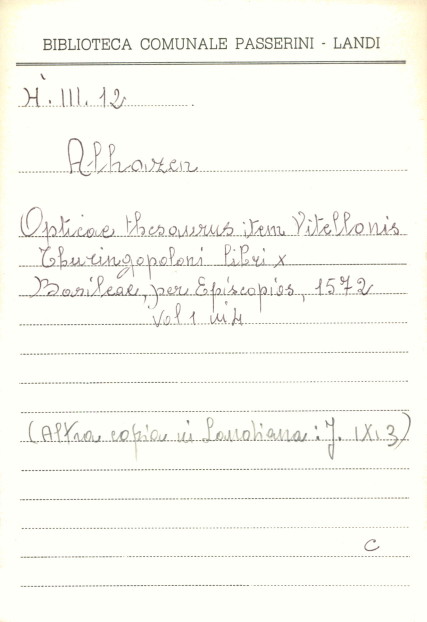 BIBLIOTECA COMUNALE PASSERINI - LANDI
H. III. 12
Alhazen
Opticae thesaurus item Vitellonis
Thuringopoloni libri x
Basileae, per Episcopios, 1572
Vol 1 in 4
(Altra copia in Landiana: J. IX. 3)
C